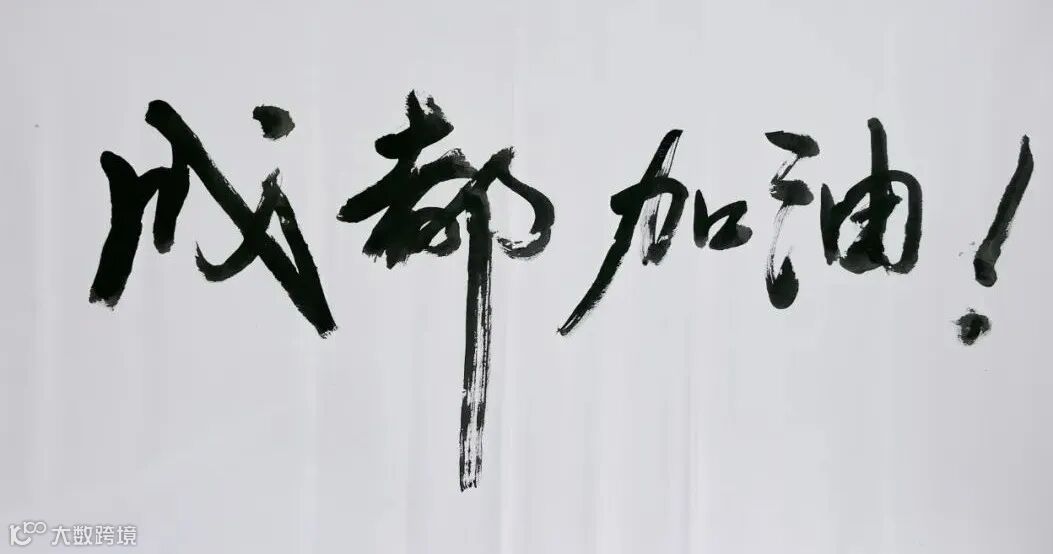 成都加油！
大数跨境